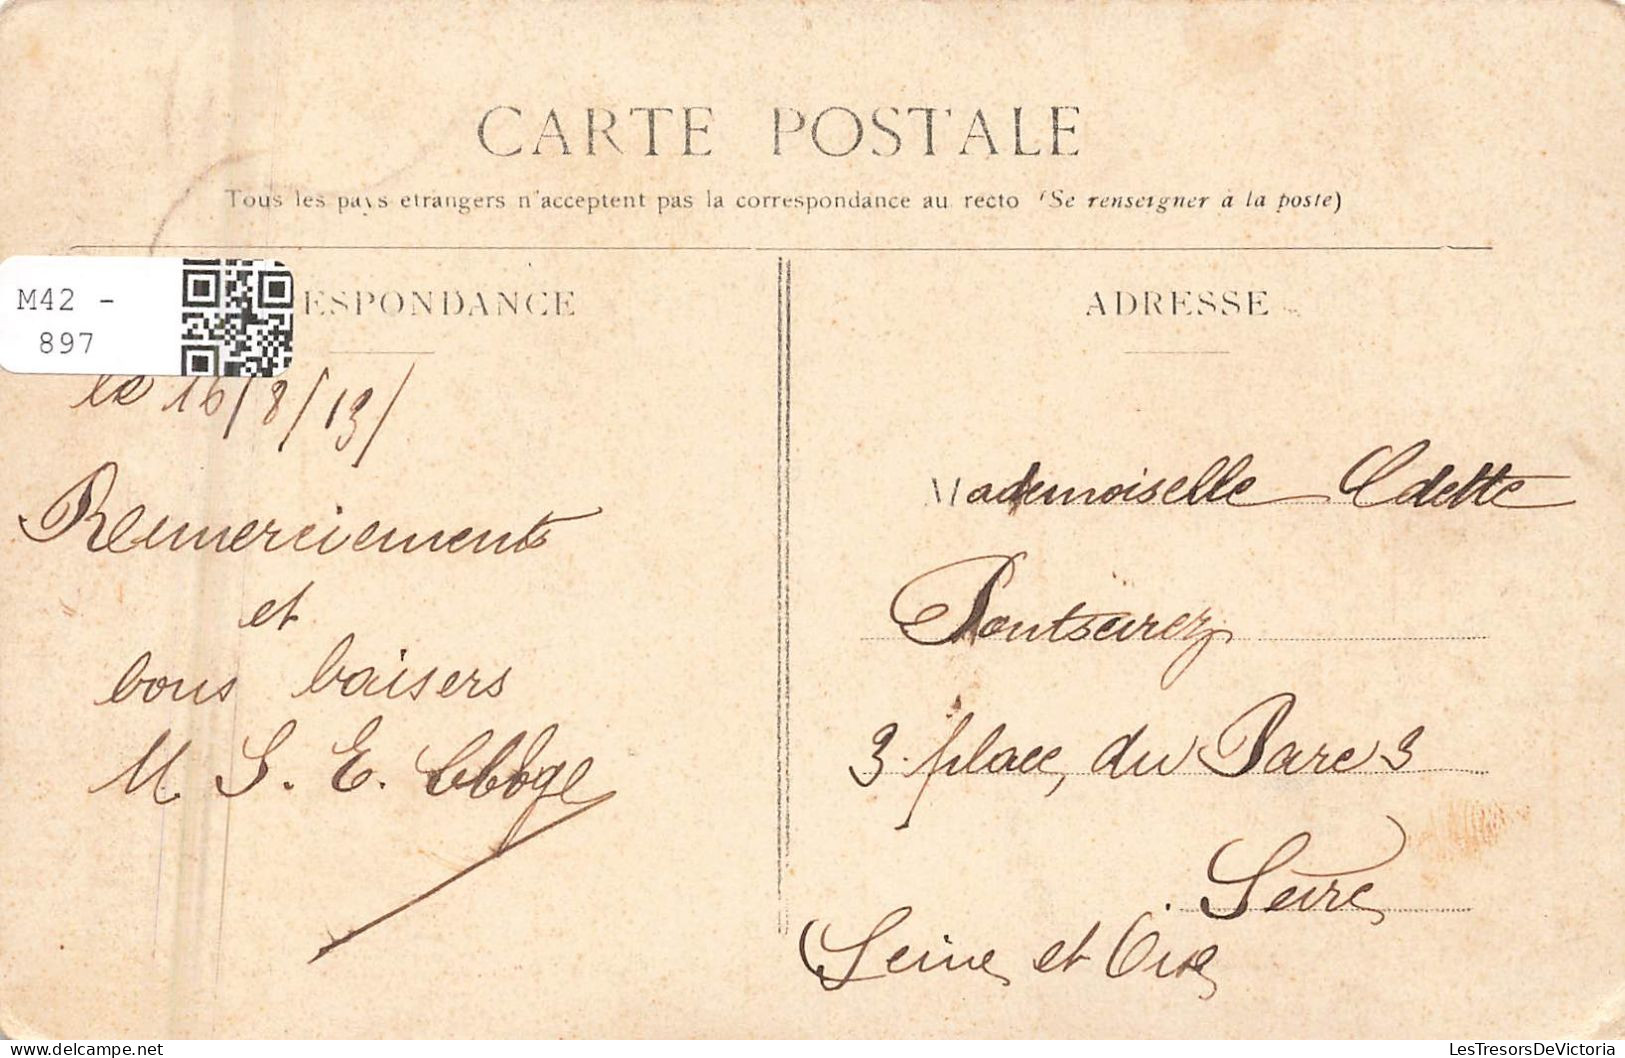 CARTE POSTALE
Tous les pays etrangers n'acceptent pas la correspondance au recto (Se renseigner à la poste)
M42 -
897
ESPONDANCE
ADRESSE
le 16/8/13/
Remerciements
et
bons baisers
M. S. E.
Mademoiselle Odette
3. place, du Parc 3
(Seine et Oise
LesTresorsDeVictoria
LesTresorsDeVictoria.com